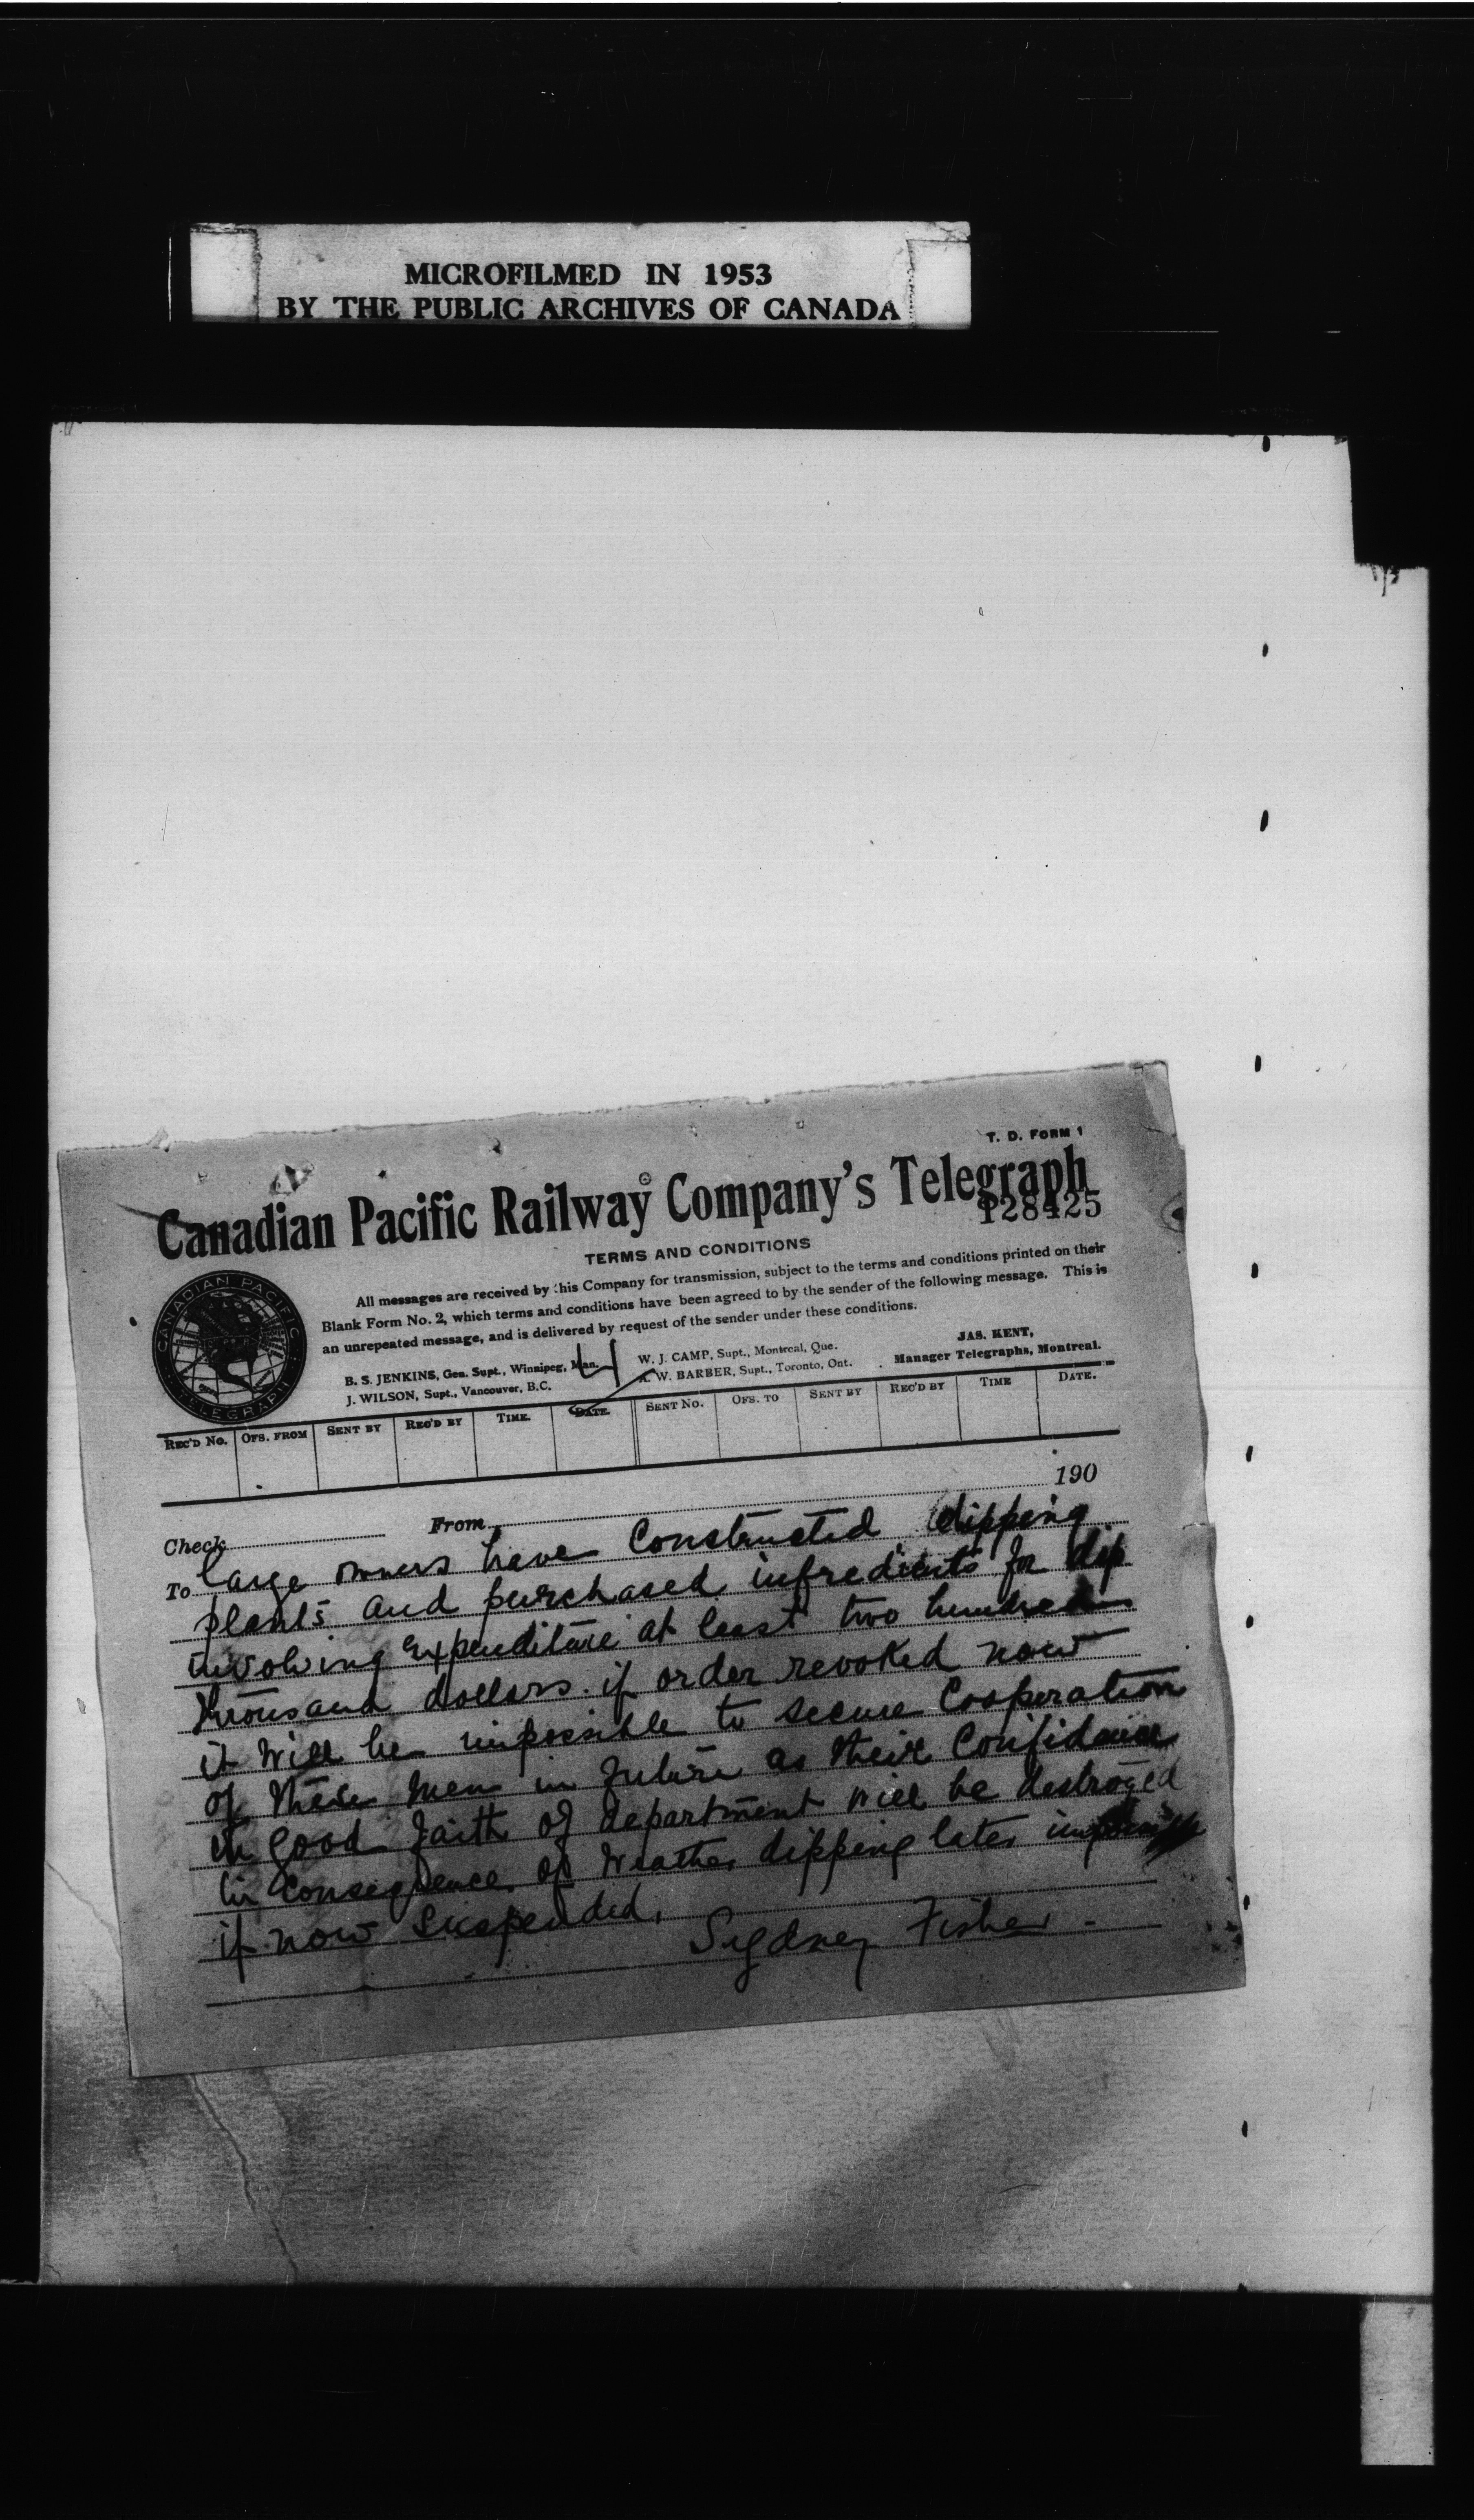 MICROFILMED IN 1953
BY THE PUBLIC ARCHIVES OF CANADA
T. D. FORM 1
Canadian Pacific Railway Company's Telegraph
128425
TERMS AND CONDITIONS
All messages are received by this Company for transmission, subject to the terms and conditions printed on their
Blank Form No. 2, which terms and conditions have been agreed to by the sender of the following message. This is
an unrepeated message, and is delivered by request of the sender under these conditions.
CANADIAN PACIFIC
TELEGRAPH
JAS. KENT,
Manager Telegraphs, Montreal.
B. S. JENKINS, Gen. Supt., Winnipeg, Man.
J. WILSON, Supt., Vancouver, B.C.
W. J. CAMP, Supt., Montreal, Que.
A. W. BARBER, Supt., Toronto, Ont.
REC'D NO. OFS. FROM SENT BY REC'D BY TIME. DATE. SENT NO. OFS. TO SENT BY REC'D BY TIME DATE.
190
Check From
To large owners have constructed dipping
plants and purchased ingredients for dip
involving expenditure at least two hundred
thousand dollars. if order revoked now
it will be impossible to secure cooperation
of these men in future as their confidence
in good faith of department will be destroyed
in consequence of weather dipping later impossible
if now suspended.
Sydney Fisher.